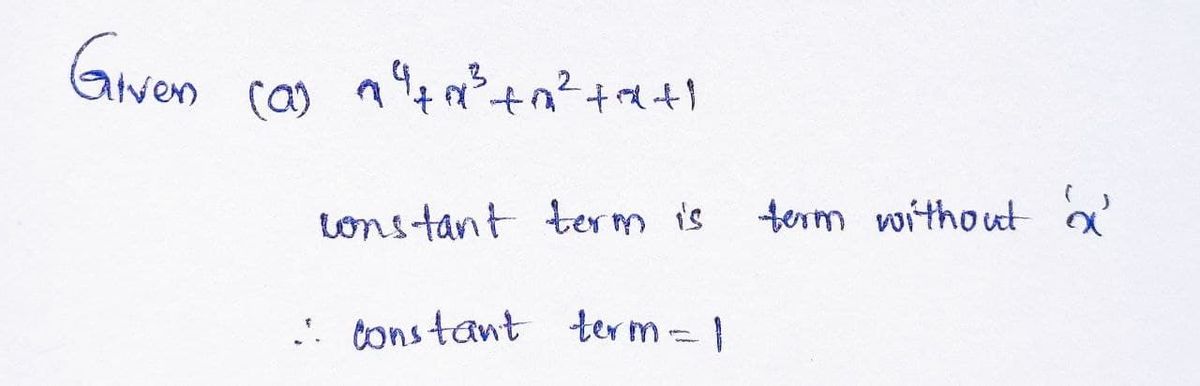 Given (a) x⁴+x³+x²+x+1
constant term is term without 'x'
∴ constant term = 1